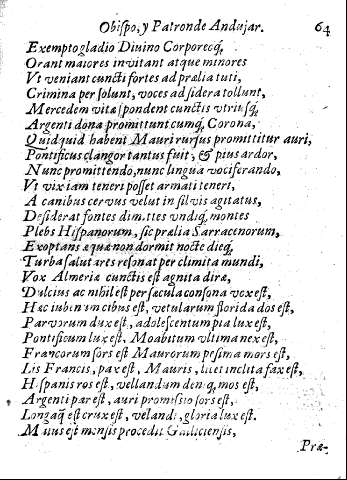 Obispo, y Patron de Andujar. 64
Exempto gladio Diuino Corporecq́,
Orant maiores inuitant atque minores
Vt veniant cuncti fortes ad prælia tuti,
Crimina persolunt, voces ad sidera tollunt,
Mercedem vitæ spondent cunctis vtriusq́,
Argenti dona promittunt cumq́, Corona,
Quidquid habent Mauri rursus promittitur auri,
Pontificus clangor tantus fuit, & pius ardor,
Nunc promittendo, nunc lingua vociferando,
Vt vix iam teneri posset armati teneri,
A canibus ceruus velut in siluis agitatus,
Desiderat fontes dimittes vndiq́, montes
Plebs Hispanorum, sic prælia Sarracenorum,
Exoptans æquæ non dormit nocte dieq́,
Turba salutares resonat per climita mundi,
Vox Almeriæ cunctis est agnita diræ,
Dulcius ac nihil est per sæcula consona vox est,
Hæc iubenum cibus est, vetularum florida dos est,
Parvorum dux est, adolescentum pia lux est,
Pontificum lux est, Moabitum vltima nex est,
Francorum sors est Maurorum pesima mors est,
Lis Francis, pax est, Mauris, lues inclita fax est,
Hispanis ros est, vellandum deniq́, mos est,
Argenti par est, auri promissio sors est,
Longaq́ est crux est, velandi, gloria lux est.
Maius est mensis procedit Galliciensis,
Præ-